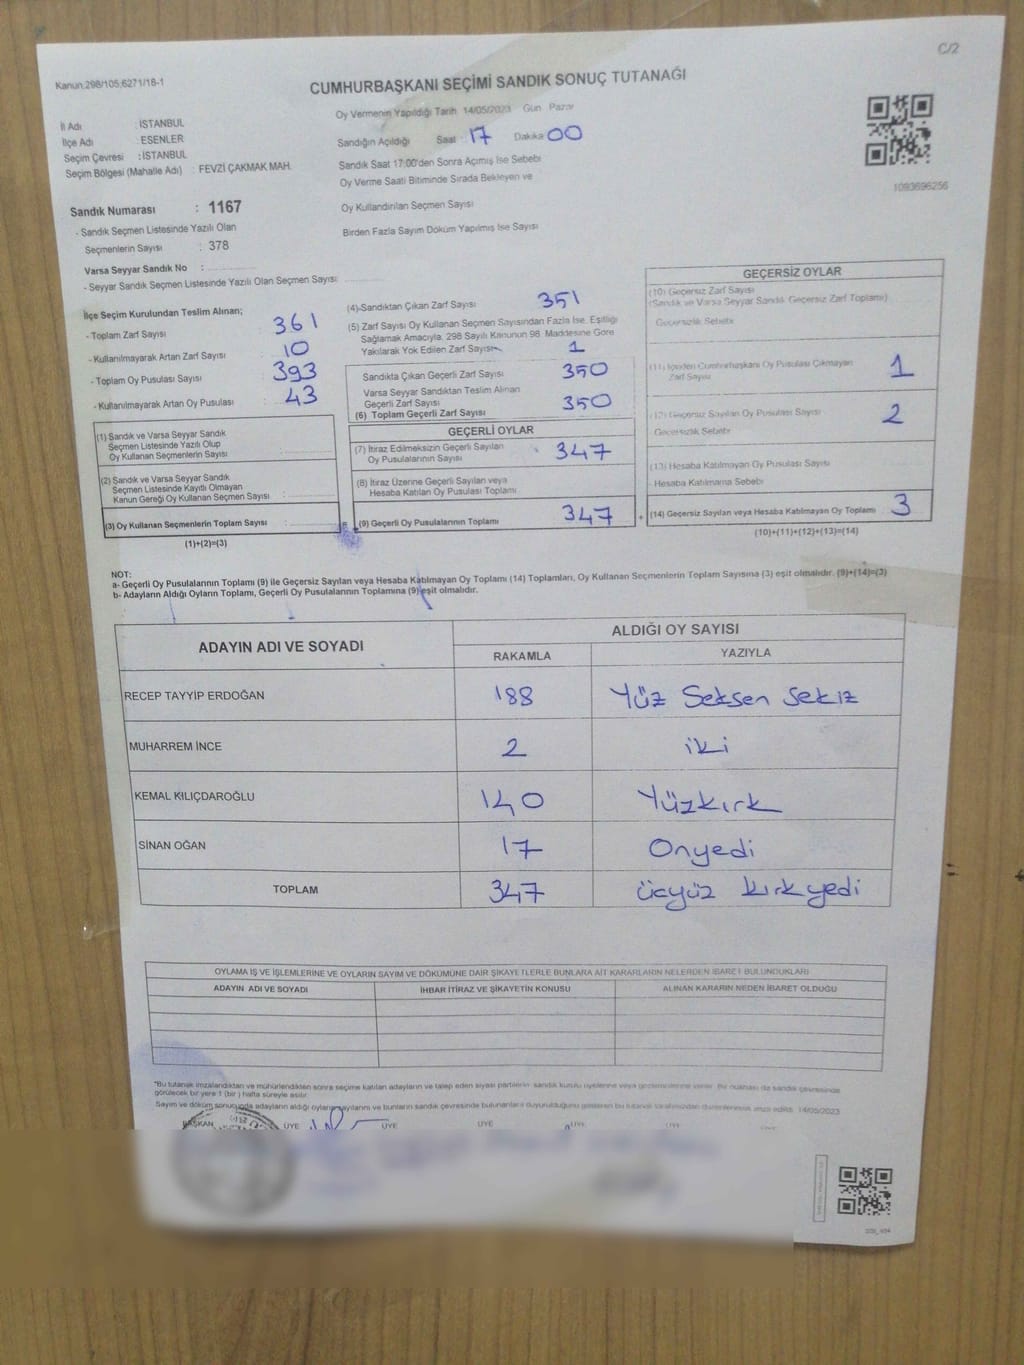 C/2
Kanun:298/105;6271/18-1
CUMHURBAŞKANI SEÇİMİ SANDIK SONUÇ TUTANAĞI
Oy Vermenin Yapıldığı Tarih 14/05/2023 Gün Pazar
İl Adı : İSTANBUL
İlçe Adı : ESENLER
Seçim Çevresi : İSTANBUL
Seçim Bölgesi (Mahalle Adı) : FEVZİ ÇAKMAK MAH.
Sandığın Açıldığı Saat : 17 Dakika 00
Sandık Saat 17:00'den Sonra Açımış İse Sebebi
Oy Verme Saati Bitiminde Sırada Bekleyen ve
Oy Kullandırılan Seçmen Sayısı
Birden Fazla Sayım Döküm Yapılmış İse Sayısı
1093696256
Sandık Numarası : 1167
- Sandık Seçmen Listesinde Yazılı Olan
Seçmenlerin Sayısı : 378
Varsa Seyyar Sandık No :
- Seyyar Sandık Seçmen Listesinde Yazılı Olan Seçmen Sayısı:
İlçe Seçim Kurulundan Teslim Alınan;
- Toplam Zarf Sayısı : 361
- Kullanılmayarak Artan Zarf Sayısı : 10
- Toplam Oy Pusulası Sayısı : 393
- Kullanılmayarak Artan Oy Pusulası : 43
(1) Sandık ve Varsa Seyyar Sandık
Seçmen Listesinde Yazılı Olup
Oy Kullanan Seçmenlerin Sayısı :
(2) Sandık ve Varsa Seyyar Sandık
Seçmen Listesinde Kayıtlı Olmayan
Kanun Gereği Oy Kullanan Seçmen Sayısı :
(3) Oy Kullanan Seçmenlerin Toplam Sayısı :
(1)+(2)=(3)
(4)-Sandıktan Çıkan Zarf Sayısı 351
(5) Zarf Sayısı Oy Kullanan Seçmen Sayısından Fazla İse, Eşitliği
Sağlamak Amacıyla, 298 Sayılı Kanunun 98. Maddesine Göre
Yakılarak Yok Edilen Zarf Sayısı 1
Sandıkta Çıkan Geçerli Zarf Sayısı 350
Varsa Seyyar Sandıktan Teslim Alınan
Geçerli Zarf Sayısı
(6) Toplam Geçerli Zarf Sayısı 350
GEÇERLİ OYLAR
(7) İtiraz Edilmeksizin Geçerli Sayılan
Oy Pusulalarının Sayısı 347
(8) İtiraz Üzerine Geçerli Sayılan veya
Hesaba Katılan Oy Pusulası Toplamı
(9) Geçerli Oy Pusulalarının Toplamı 347
GEÇERSİZ OYLAR
(10) Geçersiz Zarf Sayısı
(Sandık ve Varsa Seyyar Sandık Geçersiz Zarf Toplamı)
Geçersizlik Sebebi
(11) İçinden Cumhurbaşkanı Oy Pusulası Çıkmayan
Zarf Sayısı 1
(12) Geçersiz Sayılan Oy Pusulası Sayısı 2
Geçersizlik Sebebi
(13) Hesaba Katılmayan Oy Pusulası Sayısı
Hesaba Katılmama Sebebi
+ (14) Geçersiz Sayılan veya Hesaba Katılmayan Oy Toplamı 3
(10)+(11)+(12)+(13)=(14)
NOT:
a- Geçerli Oy Pusulalarının Toplamı (9) ile Geçersiz Sayılan veya Hesaba Katılmayan Oy Toplamı (14) Toplamları, Oy Kullanan Seçmenlerin Toplam Sayısına (3) eşit olmalıdır. (9)+(14)=(3)
b- Adayların Aldığı Oyların Toplamı, Geçerli Oy Pusulalarının Toplamına (9) eşit olmalıdır.
ADAYIN ADI VE SOYADI
ALDIĞI OY SAYISI
RAKAMLA YAZIYLA
RECEP TAYYİP ERDOĞAN 188 Yüz Seksen Sekiz
MUHARREM İNCE 2 iki
KEMAL KILIÇDAROĞLU 140 Yüzkırk
SİNAN OĞAN 17 Onyedi
TOPLAM 347 üçyüz kırkyedi
OYLAMA İŞ VE İŞLEMLERİNE VE OYLARIN SAYIM VE DÖKÜMÜNE DAİR ŞİKAYETLERLE BUNLARA AİT KARARLARIN NELERDEN İBARET BULUNDUKLARI
ADAYIN ADI VE SOYADI İHBAR İTİRAZ VE ŞİKAYETİN KONUSU ALINAN KARARIN NEDEN İBARET OLDUĞU
"Bu tutanak imzalandıktan ve mühürlendikten sonra seçime katılan adayların ve talep eden siyasi partilerin sandık kurulu üyelerine veya gözlemcilerine verilir. Bir nüshası da sandık çevresinde
görülecek bir yere 1 (bir) hafta süreyle asılır.
Sayım ve döküm sonucunda adayların aldığı oyların sayılarını ve bunların sandık çevresinde bulunanlara duyurulduğunu gösteren bu tutanak tarafımızdan düzenlenerek imza edildi. 14/05/2023
BAŞKAN ÜYE ÜYE ÜYE ÜYE ÜYE